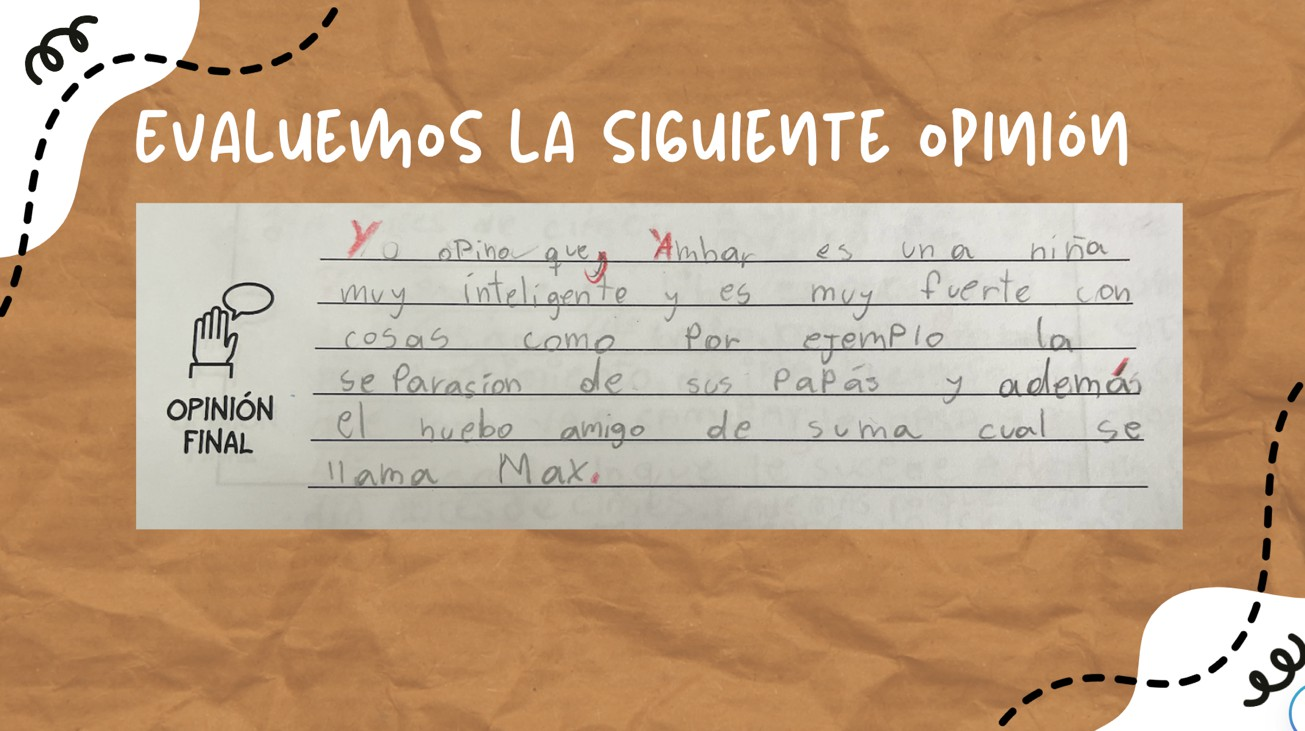 EVALUEMOS LA SIGUIENTE OPINIÓN
Yo opino que, Ambar es una niña
muy inteligente y es muy fuerte con
cosas como por ejemplo la
separasion de sus papás y además
el huebo amigo de suma cual se
llama Max.
OPINIÓN
FINAL